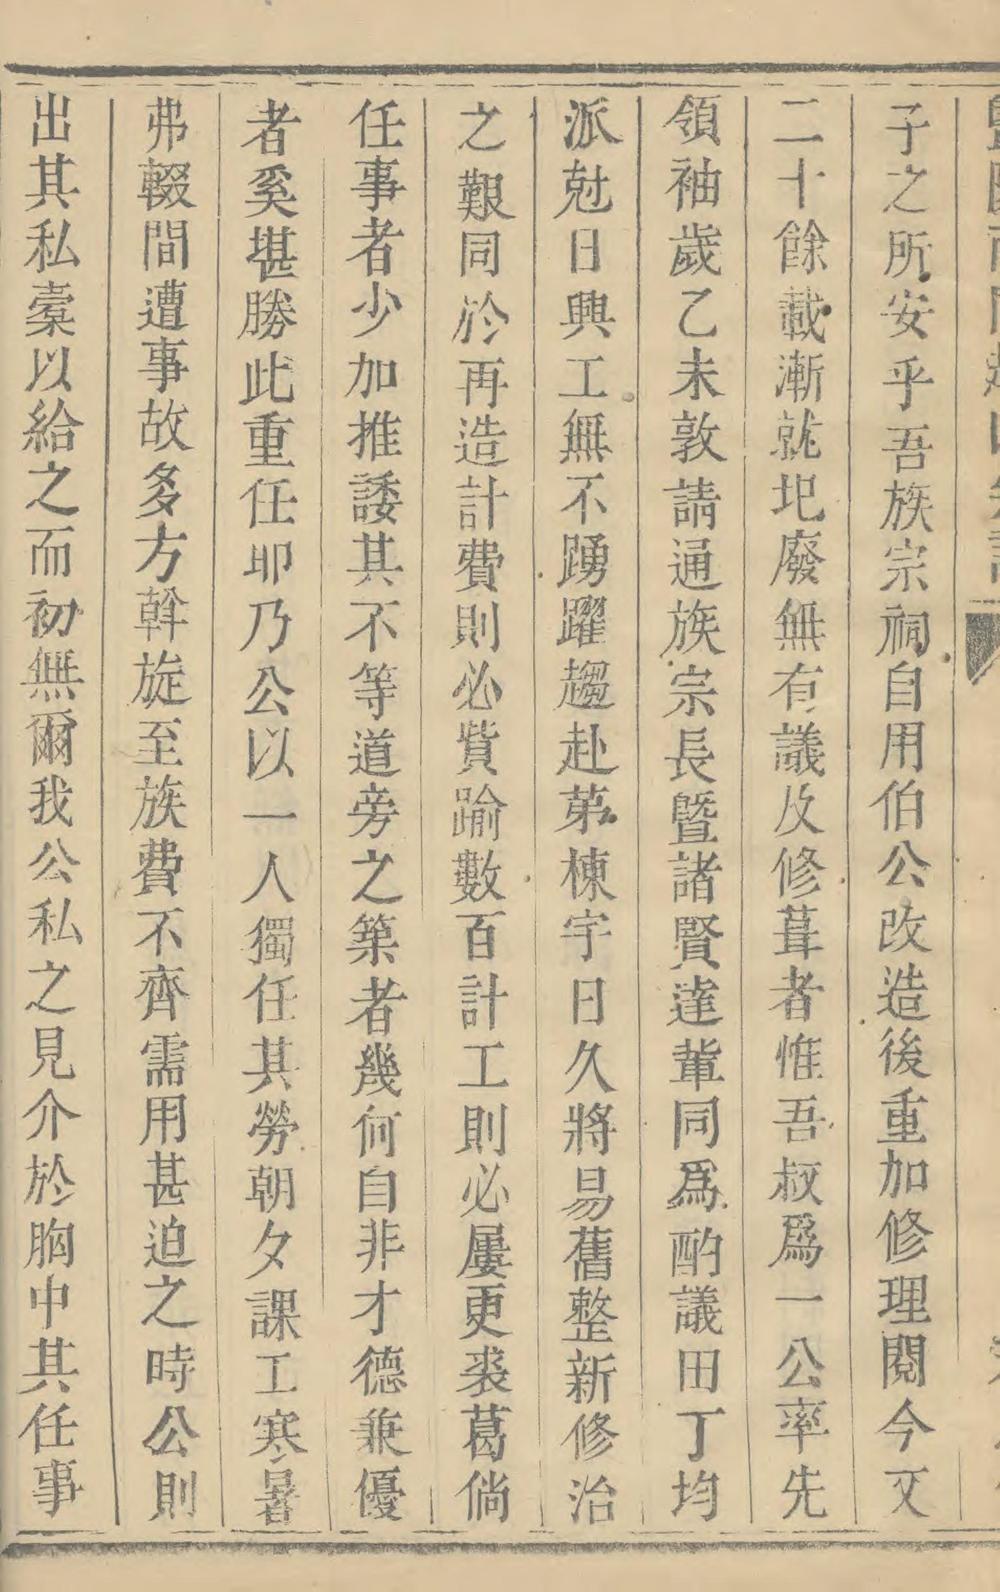 子之所安乎吾族宗祠自用伯公改造後重加修理閱今又
二十餘載漸就圯廢無有議及修葺者惟吾叔爲一公率先
領袖歲乙未敦請通族宗長暨諸賢達輩同爲酌議田丁均
派尅日興工無不踴躍趨赴第棟宇日久將易舊整新修治
之艱同於再造計費則必貲踰數百計工則必屢更裘葛倘
任事者少加推諉其不等道旁之築者幾何自非才德兼優
者奚堪勝此重任耶乃公以一人獨任其勞朝夕課工寒暑
弗輟間遭事故多方斡旋至族費不齊需用甚迫之時公則
出其私橐以給之而初無爾我公私之見介於胸中其任事